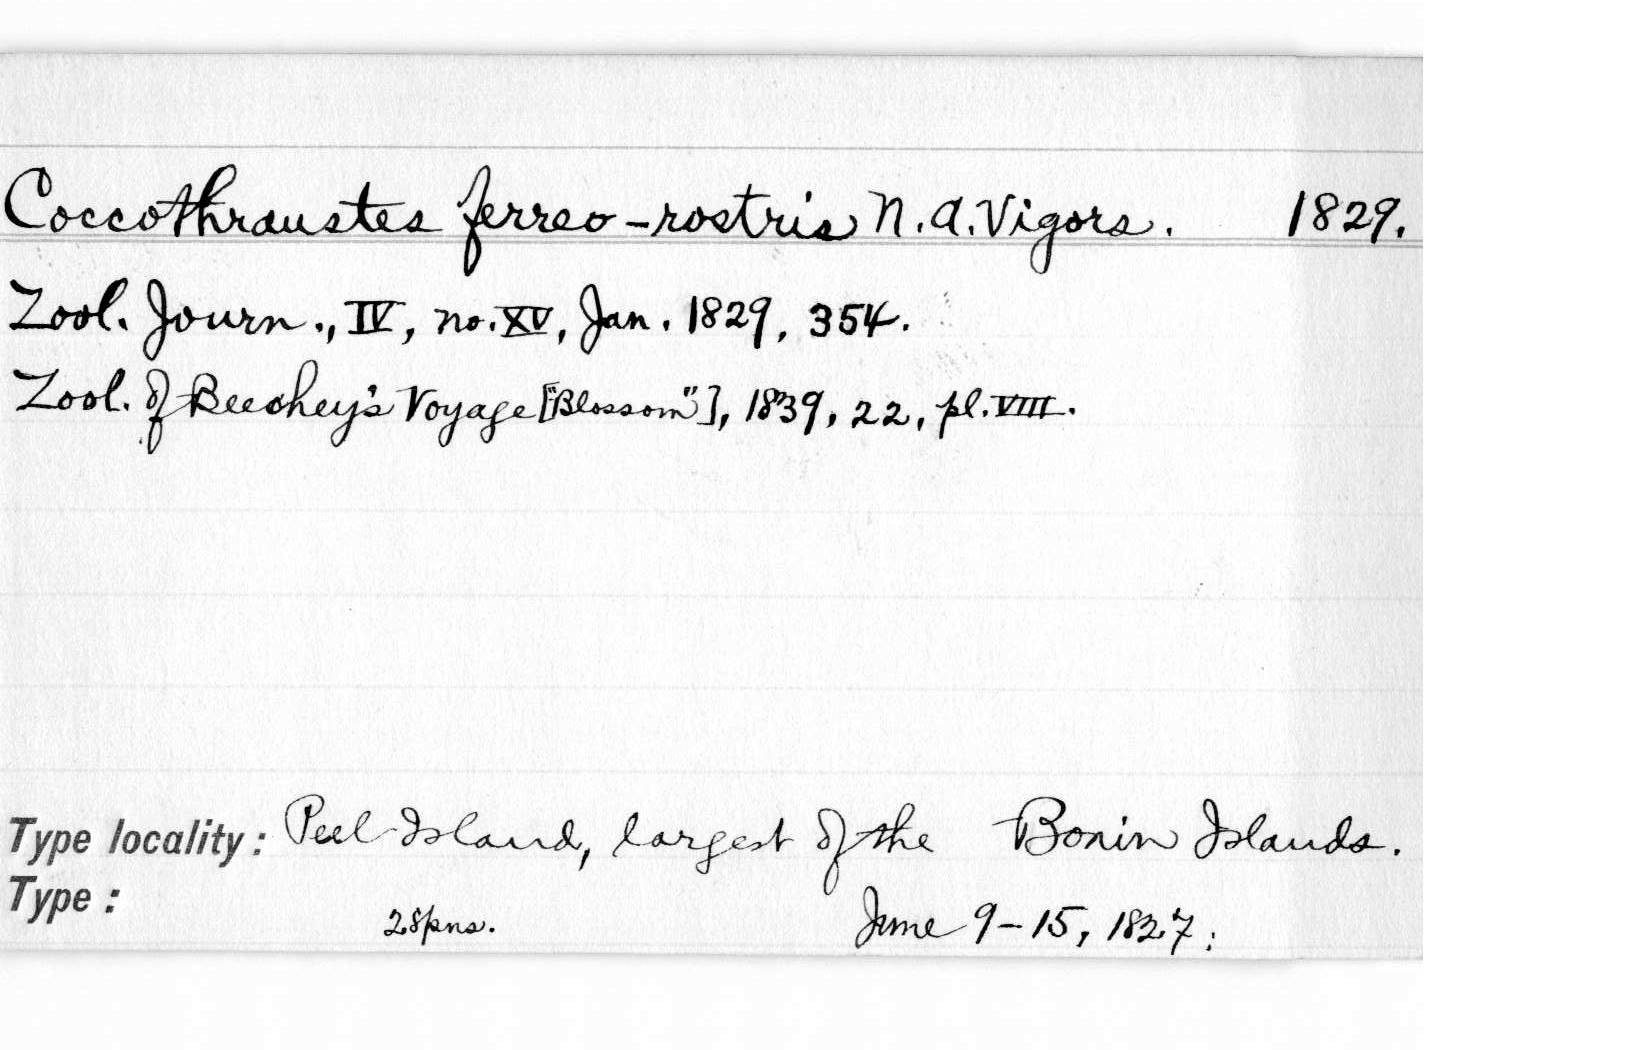 Coccothraustes ferreo-rostris N.A. Vigors. 1829.
Zool. Journ., IV, no. XV, Jan. 1829, 354.
Zool. of Beechey's Voyage ["Blossom"], 1839, 22, pl. VIII.
Type locality: Peel Island, largest of the Bonin Islands.
Type:
2 spns. June 9-15, 1827: